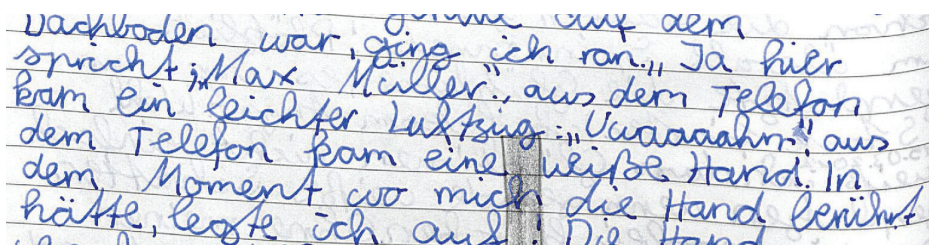 auf dem
Dachboden war, ging ich ran. „Ja hier
spricht: „Max Müller", aus dem Telefon
kam ein leichter Luftzug: „Uuaaaahm", aus
dem Telefon kam eine weiße Hand. In
dem Moment wo mich die Hand berührt
hätte, legte ich auf. Die Hand